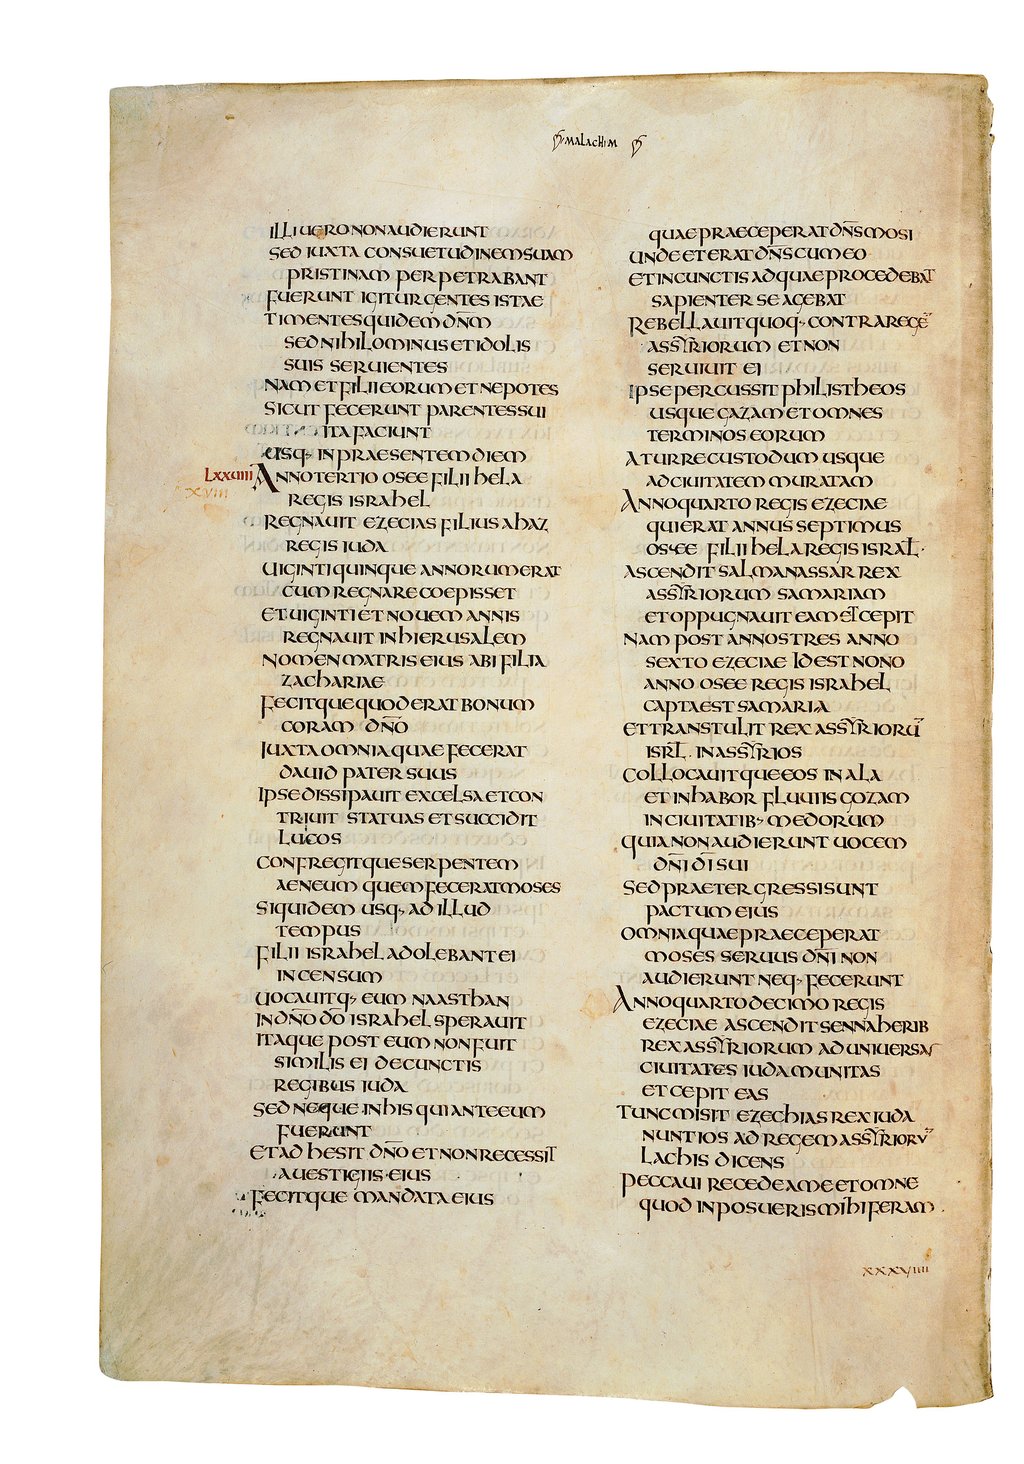 MALACHIM
ILLI UERO NON AUDIERUNT
SED IUXTA CONSUETUDINEM SUAM
PRISTINAM PERPETRABANT
FUERUNT IGITUR GENTES ISTAE
TIMENTES QUIDEM DN̄M
SED NIHILOMINUS ET IDOLIS
SUIS SERUIENTES
NAM ET FILII EORUM ET NEPOTES
SICUT FECERUNT PARENTES SUI
ITA FACIUNT
USQ· IN PRAESENTEM DIEM
LXXVIIII ANNO TERTIO OSEE FILII HELA
XVIII
REGIS ISRAHEL
REGNAUIT EZECIAS FILIUS AHAZ
REGIS IUDA
UIGINTI QUINQUE ANNORUM ERAT
CUM REGNARE COEPISSET
ET UIGINTI ET NOUEM ANNIS
REGNAUIT IN HIERUSALEM
NOMEN MATRIS EIUS ABI FILIA
ZACHARIAE
FECITQUE QUOD ERAT BONUM
CORAM DN̄O
IUXTA OMNIA QUAE FECERAT
DAUID PATER SUUS
IPSE DISSIPAUIT EXCELSA ET CON
TRIUIT STATUAS ET SUCCIDIT
LUCOS
CONFREGITQUE SERPENTEM
AENEUM QUEM FECERAT MOSES
SIQUIDEM USQ· AD ILLUD
TEMPUS
FILII ISRAHEL ADOLEBANT EI
INCENSUM
UOCAUITQ· EUM NAASTHAN
IN DN̄O DO ISRAHEL SPERAUIT
ITAQUE POST EUM NON FUIT
SIMILIS EI DE CUNCTIS
REGIBUS IUDA
SED NEQUE IN HIS QUI ANTE EUM
FUERUNT
ET ADHESIT DN̄O ET NON RECESSIT
A UESTIGIIS EIUS
FECITQUE MANDATA EIUS
QUAE PRAECEPERAT DN̄S MOSI
UNDE ET ERAT DN̄S CUM EO
ET IN CUNCTIS AD QUAE PROCEDEBAT
SAPIENTER SE AGEBAT
REBELLAUIT QUOQ· CONTRA REGĒ
ASSYRIORUM ET NON
SERUIUIT EI
IPSE PERCUSSIT PHILISTHEOS
USQUE GAZAM ET OMNES
TERMINOS EORUM
A TURRE CUSTODUM USQUE
AD CIUITATEM MURATAM
ANNO QUARTO REGIS EZECIAE
QUI ERAT ANNUS SEPTIMUS
OSEE FILII HELA REGIS ISRAL·
ASCENDIT SALMANASSAR REX
ASSYRIORUM SAMARIAM
ET OPPUGNAUIT EAM ET CEPIT
NAM POST ANNOS TRES ANNO
SEXTO EZECIAE ID EST NONO
ANNO OSEE REGIS ISRAHEL
CAPTA EST SAMARIA
ET TRANSTULIT REX ASSYRIORŪ
ISRL̄. IN ASSYRIOS
COLLOCAUITQUE EOS IN ALA
ET IN HABOR FLUUIIS GOZAM
IN CIUITATIB· MEDORUM
QUIA NON AUDIERUNT UOCEM
DN̄I DĪ SUI
SED PRAETERGRESSI SUNT
PACTUM EIUS
OMNIA QUAE PRAECEPERAT
MOSES SERUUS DN̄I NON
AUDIERUNT NEQ· FECERUNT
ANNO QUARTODECIMO REGIS
EZECIAE ASCENDIT SENNAHERIB
REX ASSYRIORUM AD UNIUERSAS
CIUITATES IUDA MUNITAS
ET CEPIT EAS
TUNC MISIT EZECHIAS REX IUDA
NUNTIOS AD REGEM ASSYRIORV̄
LACHIS DICENS
PECCAUI RECEDE A ME ET OMNE
QUOD INPOSUERIS MIHI FERAM
XXXXVIIII